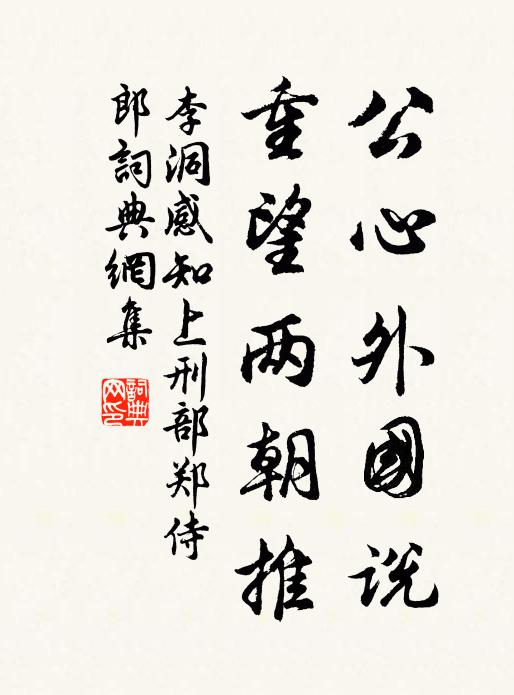 公心外國説
重望两朝推
李洞感知上刑部郑侍
郎詞典網集
詞典
网印